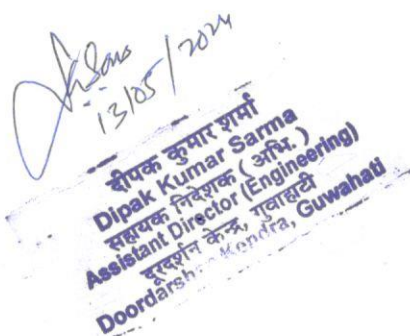 13/05/2024
दीपक कुमार शर्मा
Dipak Kumar Sarma
सहायक निदेशक (अभि.)
Assistant Director (Engineering)
दूरदर्शन केन्द्र, गुवाहाटी
Doordarshan Kendra, Guwahati